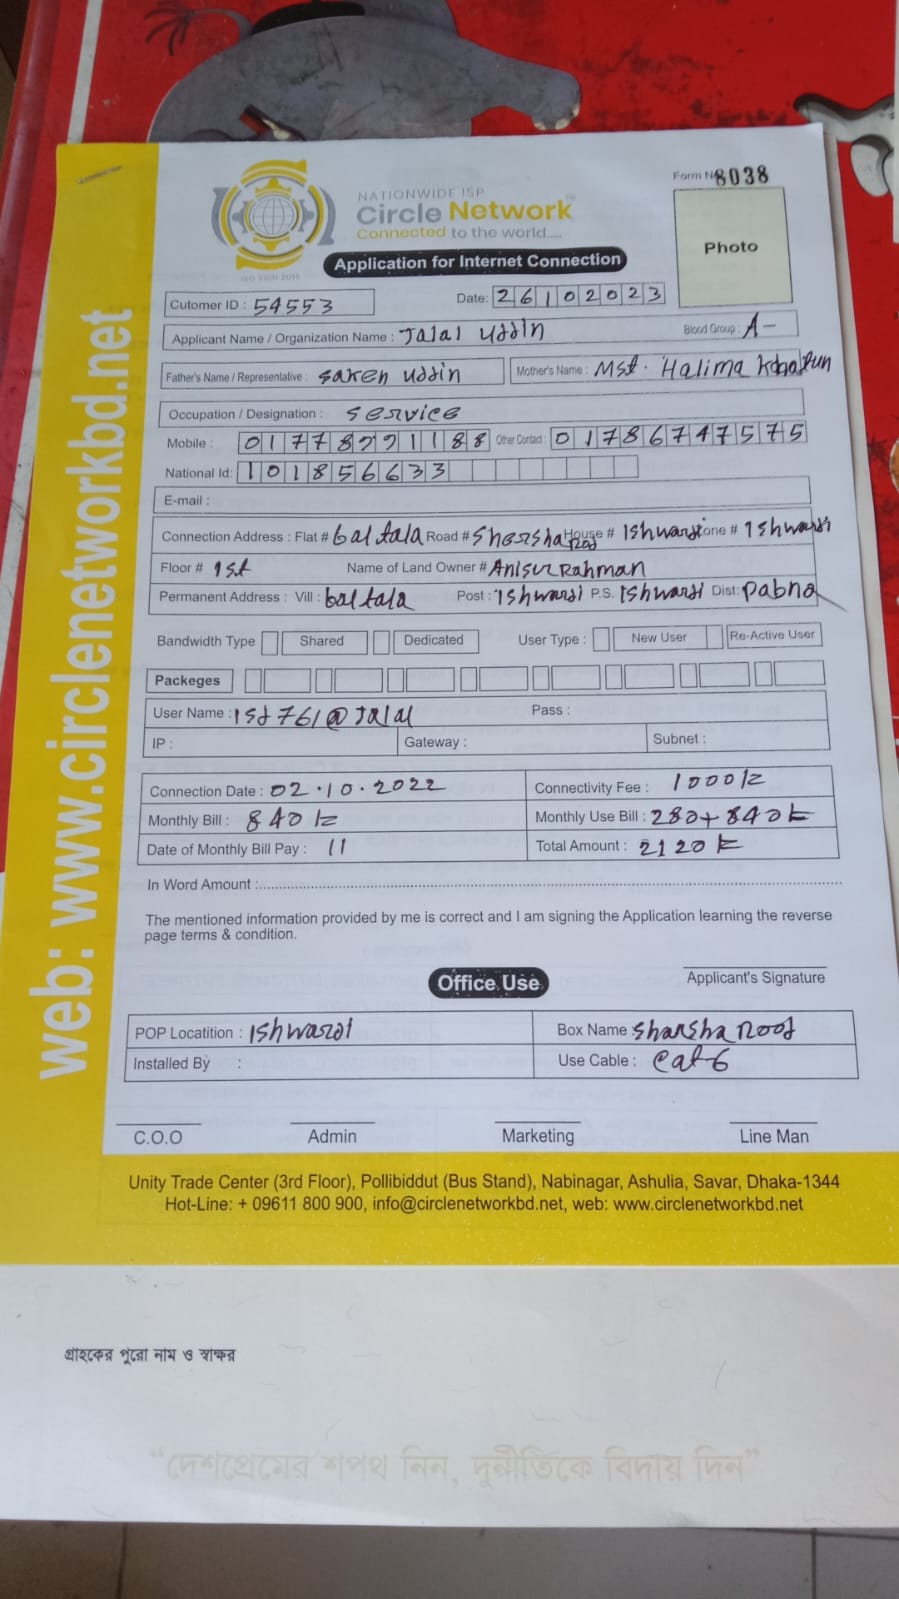 NATIONWIDE ISP
Circle Network
Connected to the world.....
ISO 9001:2015
Form No 8038
Photo
Application for Internet Connection
Cutomer ID : 54553
Date: 26102023
Applicant Name / Organization Name : Jalal Uddin
Blood Group : A-
Father's Name / Representative : Saken Uddin
Mother's Name : Mst. Halima Khatun
Occupation / Designation : Service
Mobile : 01778991188 Other Contact 01786747575
National Id: 101856633
E-mail :
Connection Address : Flat # baltala Road # Shersha Rod House # Ishwardi Zone # Ishwardi
Floor # 1st Name of Land Owner # Anisur Rahman
Permanent Address : Vill : baltala Post : Ishwardi P.S. Ishwardi Dist: Pabna
Bandwidth Type Shared Dedicated User Type : New User Re-Active User
Packeges
User Name : isd761@Jalal Pass :
IP : Gateway : Subnet :
Connection Date : 02.10.2022 Connectivity Fee : 1000
Monthly Bill : 840 Monthly Use Bill : 280+840
Date of Monthly Bill Pay : 11 Total Amount : 2120
In Word Amount :
The mentioned information provided by me is correct and I am signing the Application learning the reverse
page terms & condition.
Office Use
Applicant's Signature
POP Locatition : Ishwardi Box Name : Sharsha Rood
Installed By : Use Cable : Cat-6
C.O.O Admin Marketing Line Man
Unity Trade Center (3rd Floor), Pollibiddut (Bus Stand), Nabinagar, Ashulia, Savar, Dhaka-1344
Hot-Line: + 09611 800 900, info@circlenetworkbd.net, web: www.circlenetworkbd.net
web: www.circlenetworkbd.net
গ্রাহকের পুরো নাম ও স্বাক্ষর
“দেশপ্রেমের শপথ নিন, দুর্নীতিকে বিদায় দিন”